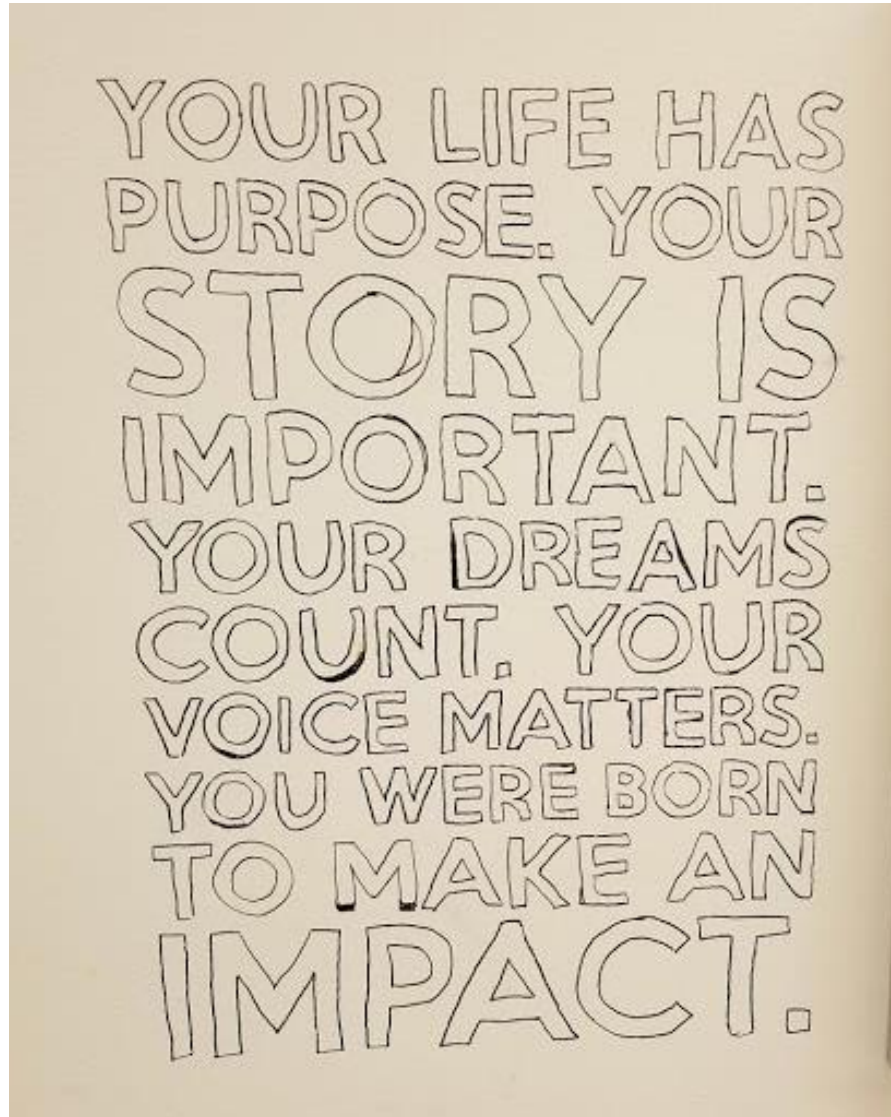 YOUR LIFE HAS
PURPOSE. YOUR
STORY IS
IMPORTANT.
YOUR DREAMS
COUNT. YOUR
VOICE MATTERS.
YOU WERE BORN
TO MAKE AN
IMPACT.